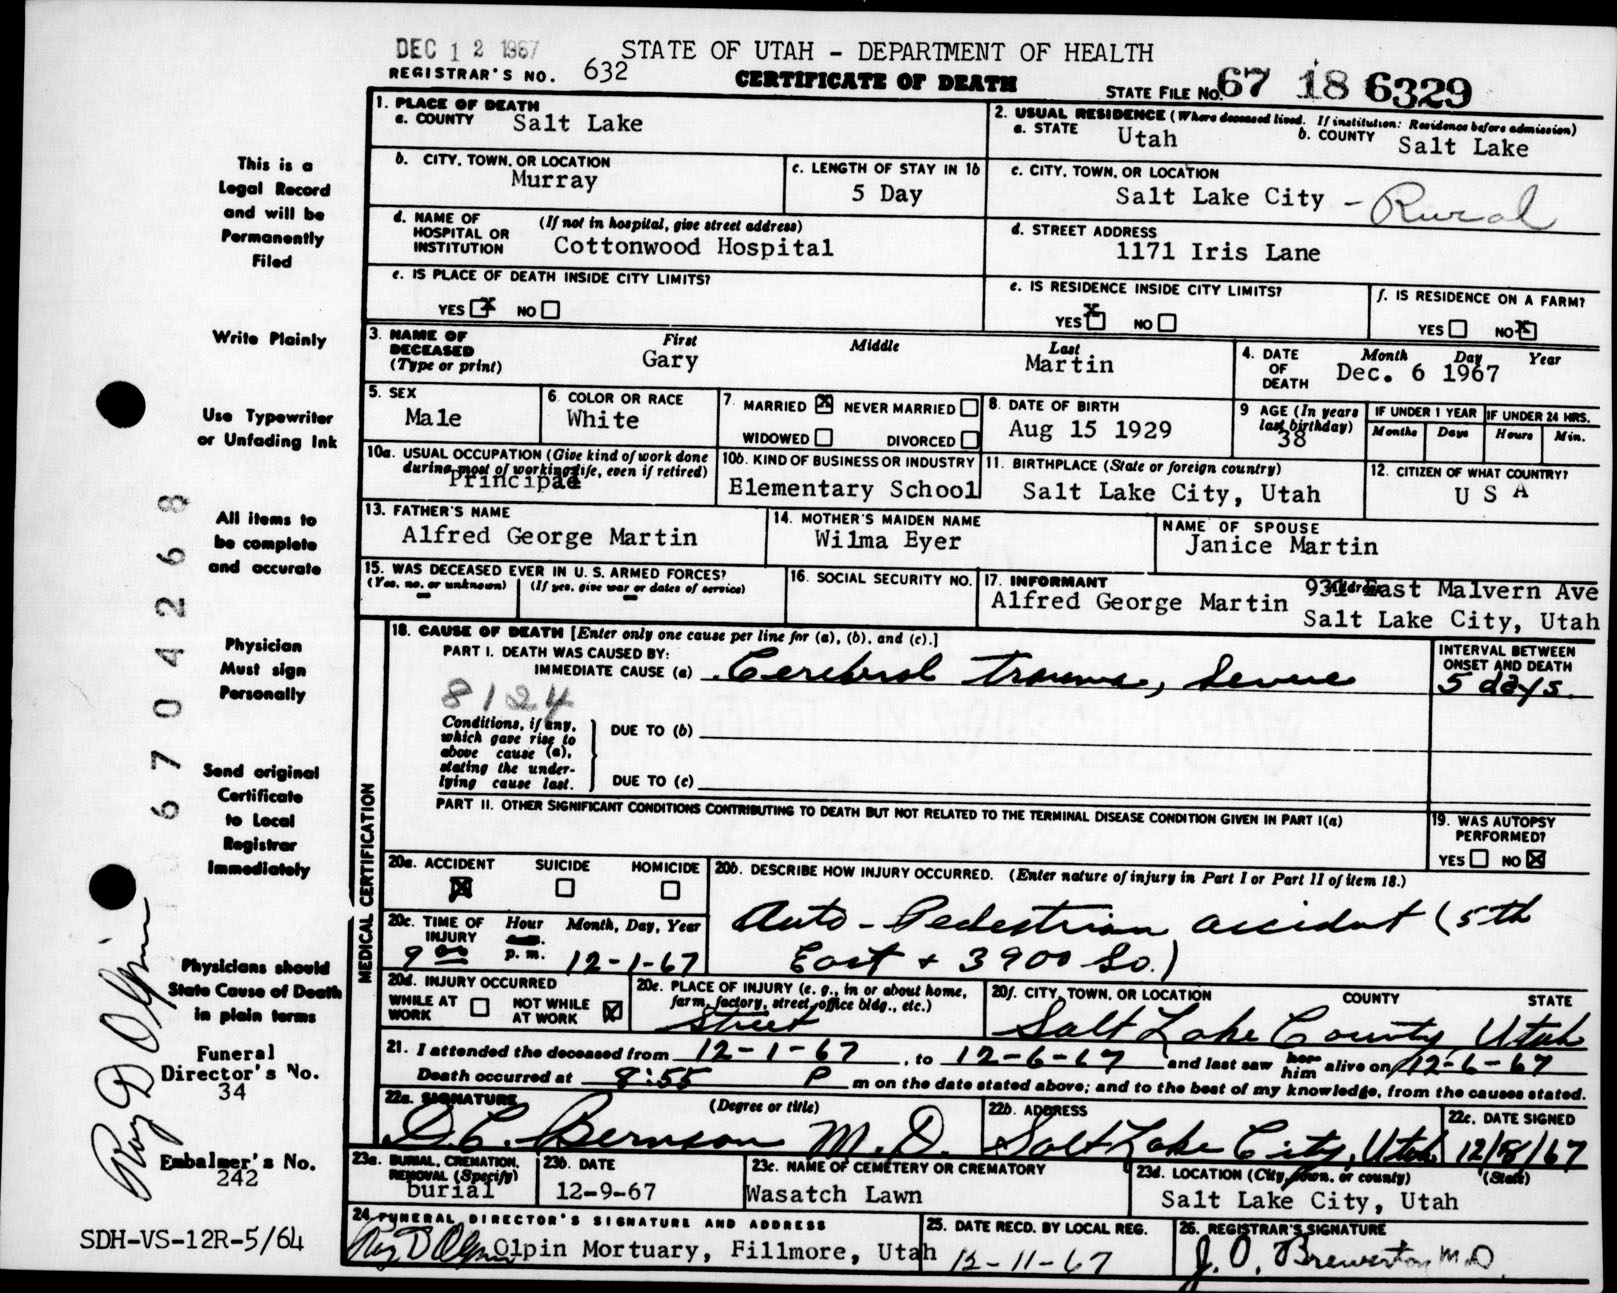 DEC 12 1967 STATE OF UTAH - DEPARTMENT OF HEALTH
REGISTRAR'S NO. 632 CERTIFICATE OF DEATH STATE FILE NO. 67 18 6329
1. PLACE OF DEATH
a. COUNTY Salt Lake
2. USUAL RESIDENCE (Where deceased lived. If institution: Residence before admission)
a. STATE Utah b. COUNTY Salt Lake
b. CITY, TOWN, OR LOCATION Murray
c. LENGTH OF STAY IN 1b 5 Day
c. CITY, TOWN, OR LOCATION
Salt Lake City - Rural
d. NAME OF HOSPITAL OR INSTITUTION (If not in hospital, give street address)
Cottonwood Hospital
d. STREET ADDRESS
1171 Iris Lane
e. IS PLACE OF DEATH INSIDE CITY LIMITS?
YES X NO
e. IS RESIDENCE INSIDE CITY LIMITS?
YES X NO
f. IS RESIDENCE ON A FARM?
YES NO X
3. NAME OF DECEASED (Type or print) First Middle Last
Gary Martin
4. DATE OF DEATH Month Day Year
Dec. 6 1967
5. SEX
Male
6. COLOR OR RACE
White
7. MARRIED X NEVER MARRIED
WIDOWED DIVORCED
8. DATE OF BIRTH
Aug 15 1929
9. AGE (In years last birthday)
38
IF UNDER 1 YEAR IF UNDER 24 HRS.
Months Days Hours Min.
10a. USUAL OCCUPATION (Give kind of work done during most of working life, even if retired)
Principal
10b. KIND OF BUSINESS OR INDUSTRY
Elementary School
11. BIRTHPLACE (State or foreign country)
Salt Lake City, Utah
12. CITIZEN OF WHAT COUNTRY?
U S A
13. FATHER'S NAME
Alfred George Martin
14. MOTHER'S MAIDEN NAME
Wilma Eyer
NAME OF SPOUSE
Janice Martin
15. WAS DECEASED EVER IN U. S. ARMED FORCES?
(Yes, no, or unknown) (If yes, give war or dates of service)
16. SOCIAL SECURITY NO.
17. INFORMANT Address
Alfred George Martin 931 East Malvern Ave
Salt Lake City, Utah
MEDICAL CERTIFICATION
18. CAUSE OF DEATH [Enter only one cause per line for (a), (b), and (c).]
PART I. DEATH WAS CAUSED BY:
IMMEDIATE CAUSE (a) Cerebral trauma, Severe
INTERVAL BETWEEN ONSET AND DEATH
5 days.
8124
Conditions, if any, which gave rise to above cause (a), stating the underlying cause last.
DUE TO (b)
DUE TO (c)
PART II. OTHER SIGNIFICANT CONDITIONS CONTRIBUTING TO DEATH BUT NOT RELATED TO THE TERMINAL DISEASE CONDITION GIVEN IN PART I(a)
19. WAS AUTOPSY PERFORMED?
YES NO X
20a. ACCIDENT SUICIDE HOMICIDE
X
20b. DESCRIBE HOW INJURY OCCURRED. (Enter nature of injury in Part I or Part II of item 18.)
Auto - Pedestrian accident (5th
East + 3900 So.)
20c. TIME OF INJURY Hour Month, Day, Year
9 00 p. m. 12-1-67
20d. INJURY OCCURRED
WHILE AT WORK NOT WHILE AT WORK X
20e. PLACE OF INJURY (e. g., in or about home, farm, factory, street, office bldg., etc.)
Street
20f. CITY, TOWN, OR LOCATION COUNTY STATE
Salt Lake County Utah
21. I attended the deceased from 12-1-67, to 12-6-67 and last saw her him alive on 12-6-67
Death occurred at 9:55 P m on the date stated above; and to the best of my knowledge, from the causes stated.
22a. SIGNATURE (Degree or title)
D.C. Bernson M.D.
22b. ADDRESS
Salt Lake City, Utah
22c. DATE SIGNED
12/8/67
23a. BURIAL, CREMATION, REMOVAL (Specify)
burial
23b. DATE
12-9-67
23c. NAME OF CEMETERY OR CREMATORY
Wasatch Lawn
23d. LOCATION (City, town, or county) (State)
Salt Lake City, Utah
24. FUNERAL DIRECTOR'S SIGNATURE AND ADDRESS
Ray D Olpin Olpin Mortuary, Fillmore, Utah
25. DATE RECD. BY LOCAL REG.
12-11-67
26. REGISTRAR'S SIGNATURE
J. O. Brewerton M.D.
This is a
Legal Record
and will be
Permanently
Filed
Write Plainly
Use Typewriter
or Unfading Ink
All items to
be complete
and accurate
Physician
Must sign
Personally
Send original
Certificate
to Local
Registrar
Immediately
Physicians should
State Cause of Death
in plain terms
Funeral
Director's No.
34
Embalmer's No.
242
SDH-VS-12R-5/64
6704268
Ray D Olpin